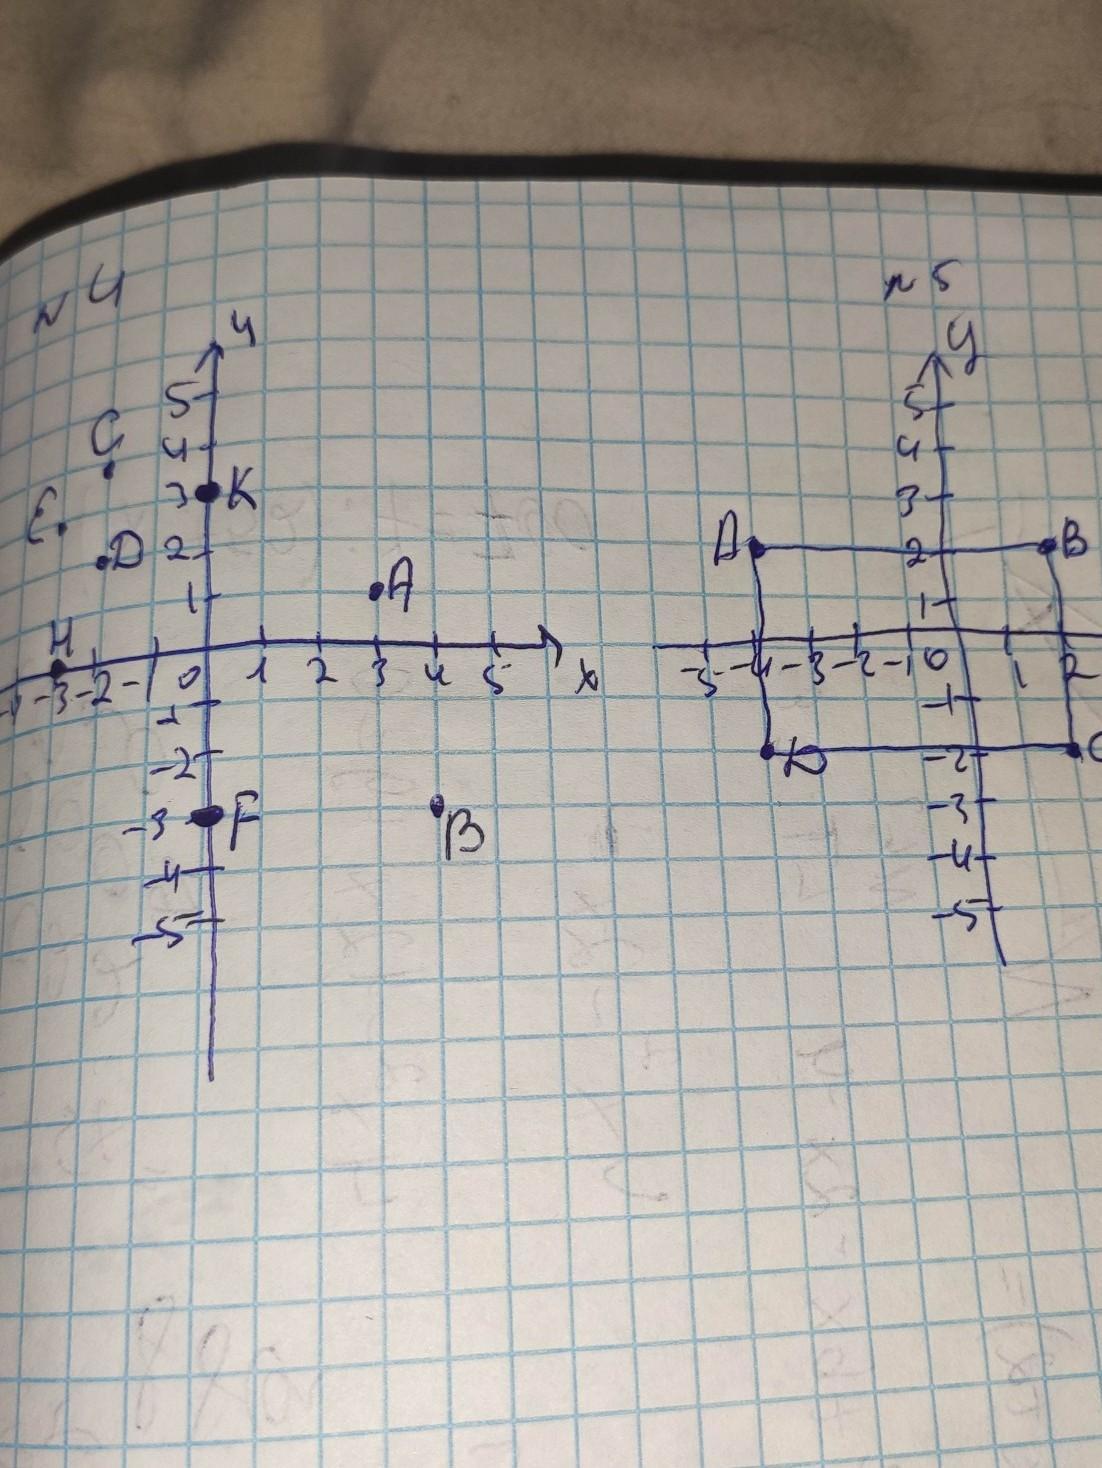 №4
y
5
C
4
3 K
E
D 2
1 A
H
-4 -3 -2 -1 0 1 2 3 4 5 x
-1
-2
-3 F
B
-4
-5
№5
y
5
4
3
A 2 B
1
-5 -4 -3 -2 -1 0 1 2
-1
D -2 C
-3
-4
-5